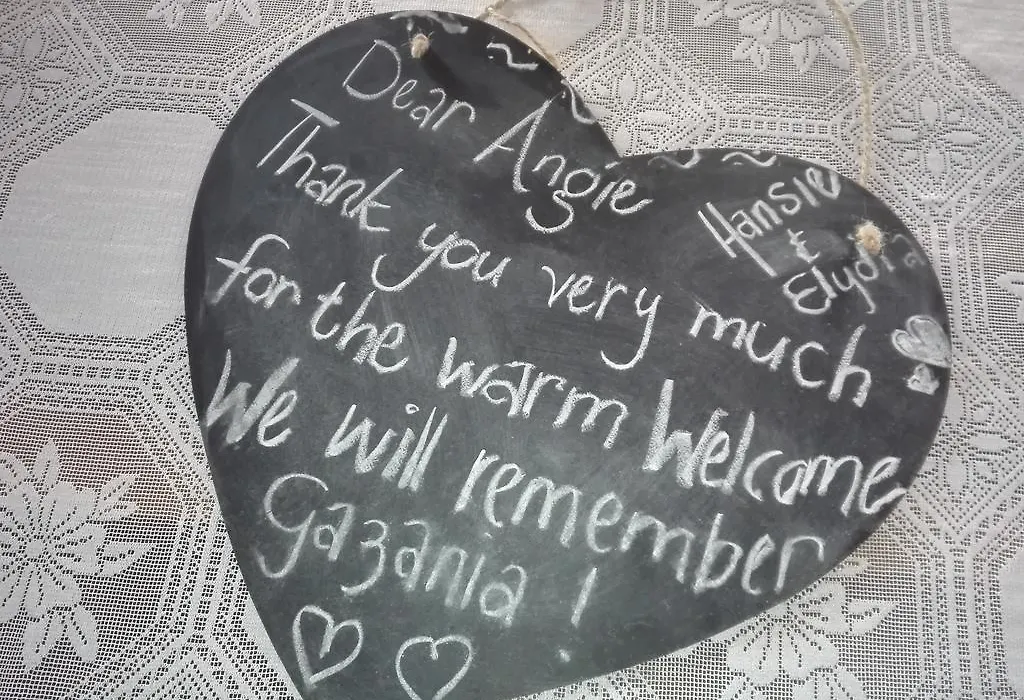 Dear Angie
Thank you very much
for the warm Welcome
We will remember
Gazania!
Hansie
&
Elydia